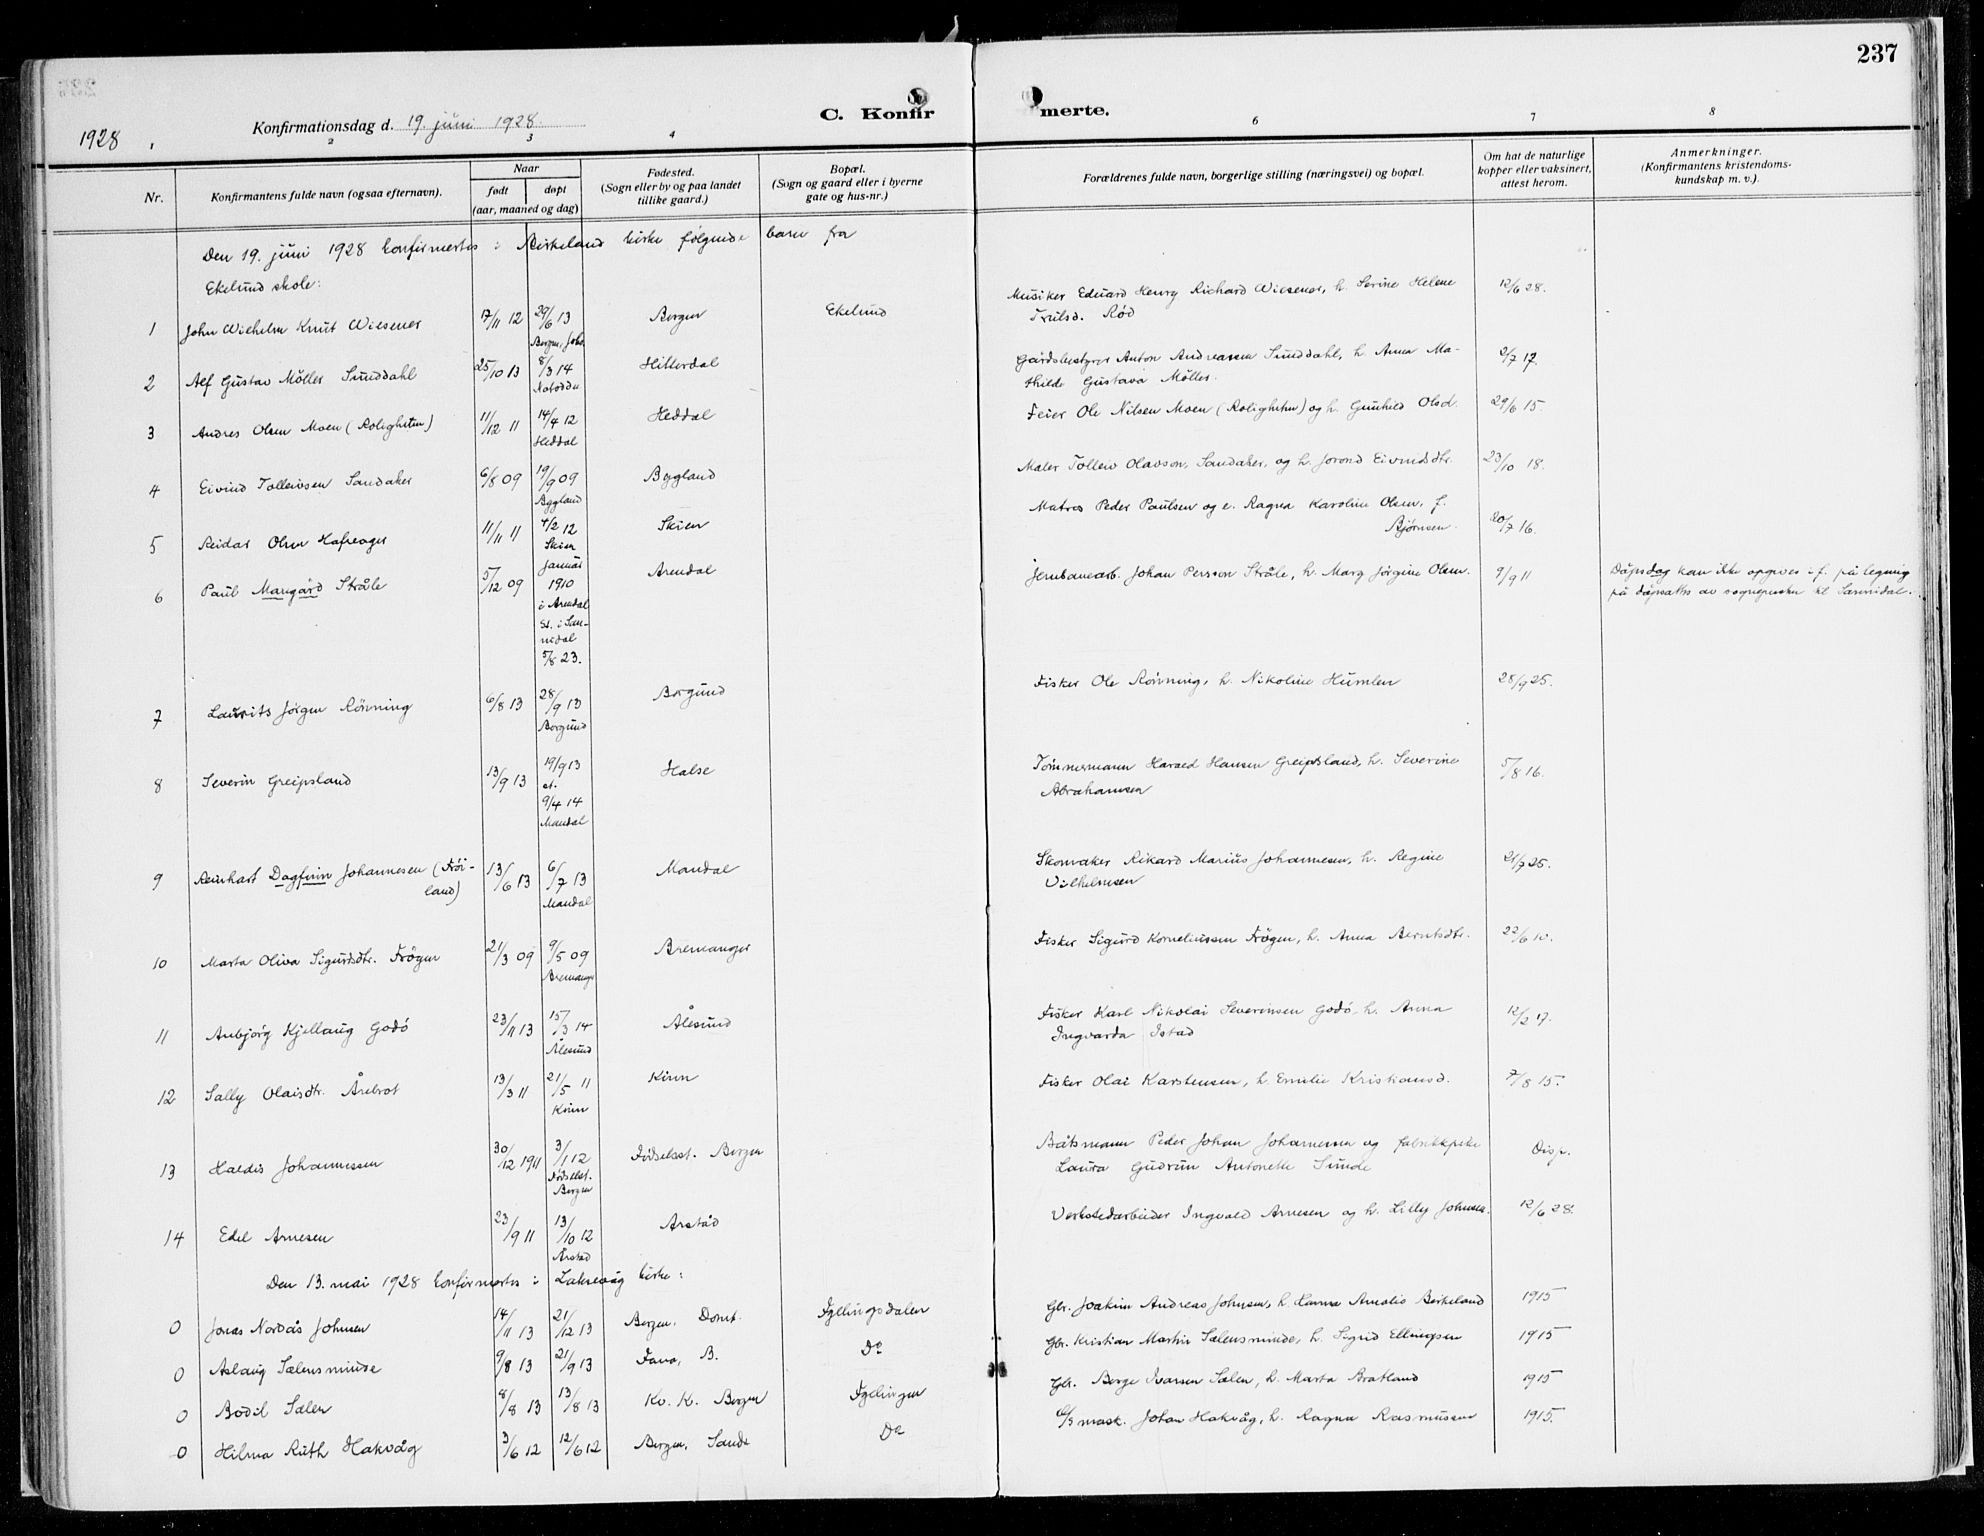 237
1928
Konfirmationsdag d. 19. juni 1928.
C. Konfirmerte.
1 2 3 4 6 7 8
Nr.
Konfirmantens fulde navn (ogsaa efternavn).
Naar
født døpt
(aar, maaned og dag)
Fødested.
(Sogn eller by og paa landet
tillike gaard.)
Bopæl.
(Sogn og gaard eller i byerne
gate og hus-nr.)
Forældrenes fulde navn, borgerlige stilling (næringsvei) og bopæl.
Om hat de naturlige
kopper eller vaksinert,
attest herom.
Anmerkninger.
(Konfirmantens kristendoms-
kundskap m. v.).
Den 19. juni 1928 konfirmertes i Birkeland kirke følgende barn fra
Ekelund skole:
1 John Wilhelm Knut Wiesener 17/11 12 29/6 13 Bergen Ekelund Musiker Eduard Henry Richard Wiesener, h. Serine Helene 12/6 28.
Bergen, Joh. Rød
2 Alf Gustav Möller Sunddahl 25/10 13 8/3 14 Hitterdal Gårdsbestyrer Anton Andreassen Sunddahl, h. Anna Ma- 2/7 17.
Notodden thilde Gustava Möller.
3 Andres Olsen Moen (Roligheten) 11/12 11 14/4 12 Heddal Feier Ole Nilsen Moen (Roligheten) og h. Gunhild Olsd. 29/6 15.
Heddal
4 Eivind Tolleivsen Sandaker 6/8 09 19/9 09 Bygland Maler Tolleiv Olavson, Sandaker, og h. Jorond Eivindsdtr. 23/10 18.
Bygland
5 Reidar Olsen Hafrager 11/11 11 4/2 12 Skien Matros Peder Paulsen og e. Ragna Karoline Olsen, f. 20/7 16.
Skien Bjørnsen.
6 Paul Mangård Stråle 5/12 09 januar Arendal Jernbanearb. Johan Person Stråle, h. Marg Jörgine Olsen. 9/9 11 Dåpsdag kan ikke opgives i f. på legning
1910 på dåpsattest av sognepresten til Sannidal.
i Arendal
st. i San-
nidal
5/8 23.
7 Laurits Jörgen Rönning 6/8 13 28/9 13 Borgund Fisker Ole Rönning, h. Nikoline Humlen 28/9 25.
Borgund
8 Severin Greipsland 13/9 13 19/9 13 Halse Tömmermann Harald Hansen Greipsland, h. Severine 5/8 16.
st. Abrahamsen
9/4 14
Mandal
9 Reinhart Dagfinn Johannesen (Fröi- 13/6 13 6/7 13 Mandal Skomaker Rikard Marius Johannesen, h. Regine 21/7 25.
land) Mandal Vilhelmsen
10 Marta Oliva Sigurdsdtr. Frögen 21/3 09 9/5 09 Bremanger Fisker Sigurd Korneliussen Frögen, h. Anna Berntsdtr. 22/6 10.
Bremanger
11 Anbjörg Kjellaug Godö 23/11 13 15/3 14 Ålesund Fisker Karl Nikolai Severinsen Godö, h. Anna 12/2 17.
Ålesund Ingvarda Istad
12 Sally Olaisdtr. Årebrot 13/3 11 21/5 11 Kinn Fisker Olai Karstensen, h. Emilie Kristiansd. 7/8 15.
Kinn
13 Haldis Johannessen 30/12 1911 3/1 12 Födselsst. Bergen Båtsmann Peder Johan Johannesen og fabrikkpike Disp.
Födselsst. Laura Gudrun Antonette Sunde
Bergen
14 Edel Arnesen 23/9 11 13/10 12 Årstad Verkstedarbeider Ingvald Arnesen og h. Lilly Johnsen. 12/6 28.
Årstad
Den 13. mai 1928 konfirmertes i Laksevåg kirke:
0 Jonas Nordås Johnsen 14/11 13 21/12 13 Bergen, Domk. Fyllingsdalen Gbr. Joakim Andreas Johnsen, h. Hanna Amalie Birkeland 1915
0 Aslaug Sælensminde 9/8 13 21/9 13 Fana, B. Do Gbr. Kristian Martin Sælensminde, h. Sigrid Ellingsen 1915
0 Bodil Sælen 8/8 13 13/8 13 Kv. K. Bergen Fyllingen Gbr. Berge Ivarsen Sælen, h. Marta Bratland 1915
0 Hilma Ruth Hakvåg 3/6 12 12/6 12 Bergen, Sandv. Do mask. Johan Hakvåg, h. Ragna Rasmussen 1915.